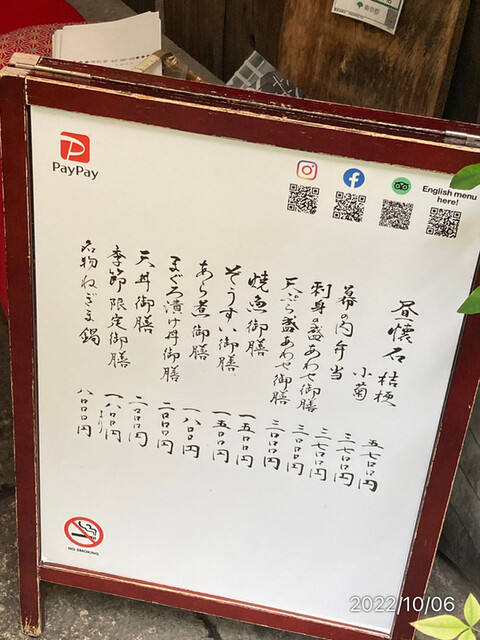 PayPay
English menu
here!
昼懐石 桔梗 五七〇〇円
小菊 三七〇〇円
幕の内弁当 三七〇〇円
刺身の盛あわせ御膳 三〇〇〇円
天ぷら盛あわせ御膳 三〇〇〇円
焼魚御膳 一五〇〇円
ぞうすい御膳 一五〇〇円
あら煮御膳 一八〇〇円
まぐろ漬け丼御膳 二〇〇〇円
天丼御膳 二〇〇〇円
季節限定御膳 一八〇〇円より
名物ねぎま鍋 八〇〇〇円
NO SMOKING
2022/10/06